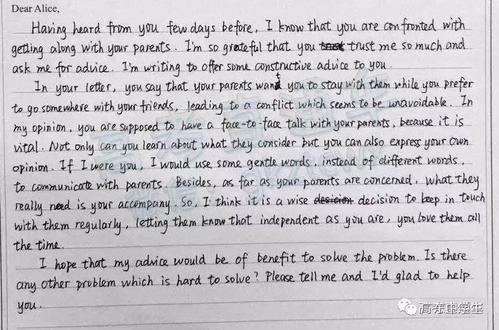 Dear Alice,
Having heard from you few days before, I know that you are confronted with
getting along with your parents. I'm so grateful that you trust me so much and
ask me for advice. I'm writing to offer some constructive advice to you.
In your letter, you say that your parents want you to stay with them while you prefer
to go somewhere with your friends, leading to a conflict which seems to be unavoidable. In
my opinion, you are supposed to have a face-to-face talk with your parents, because it is
vital. Not only can you learn about what they consider but you can also express your own
opinion. If I were you, I would use some gentle words, instead of different words,
to communicate with parents. Besides, as far as your parents are concerned, what they
really need is your accompany. So, I think it is a wise decision to keep in touch
with them regularly, letting them know that independent as you are, you love them all
the time.
I hope that my advice would be of benefit to solve the problem. Is there
any other problem which is hard to solve? Please tell me and I'd glad to help
you.
高考中学生